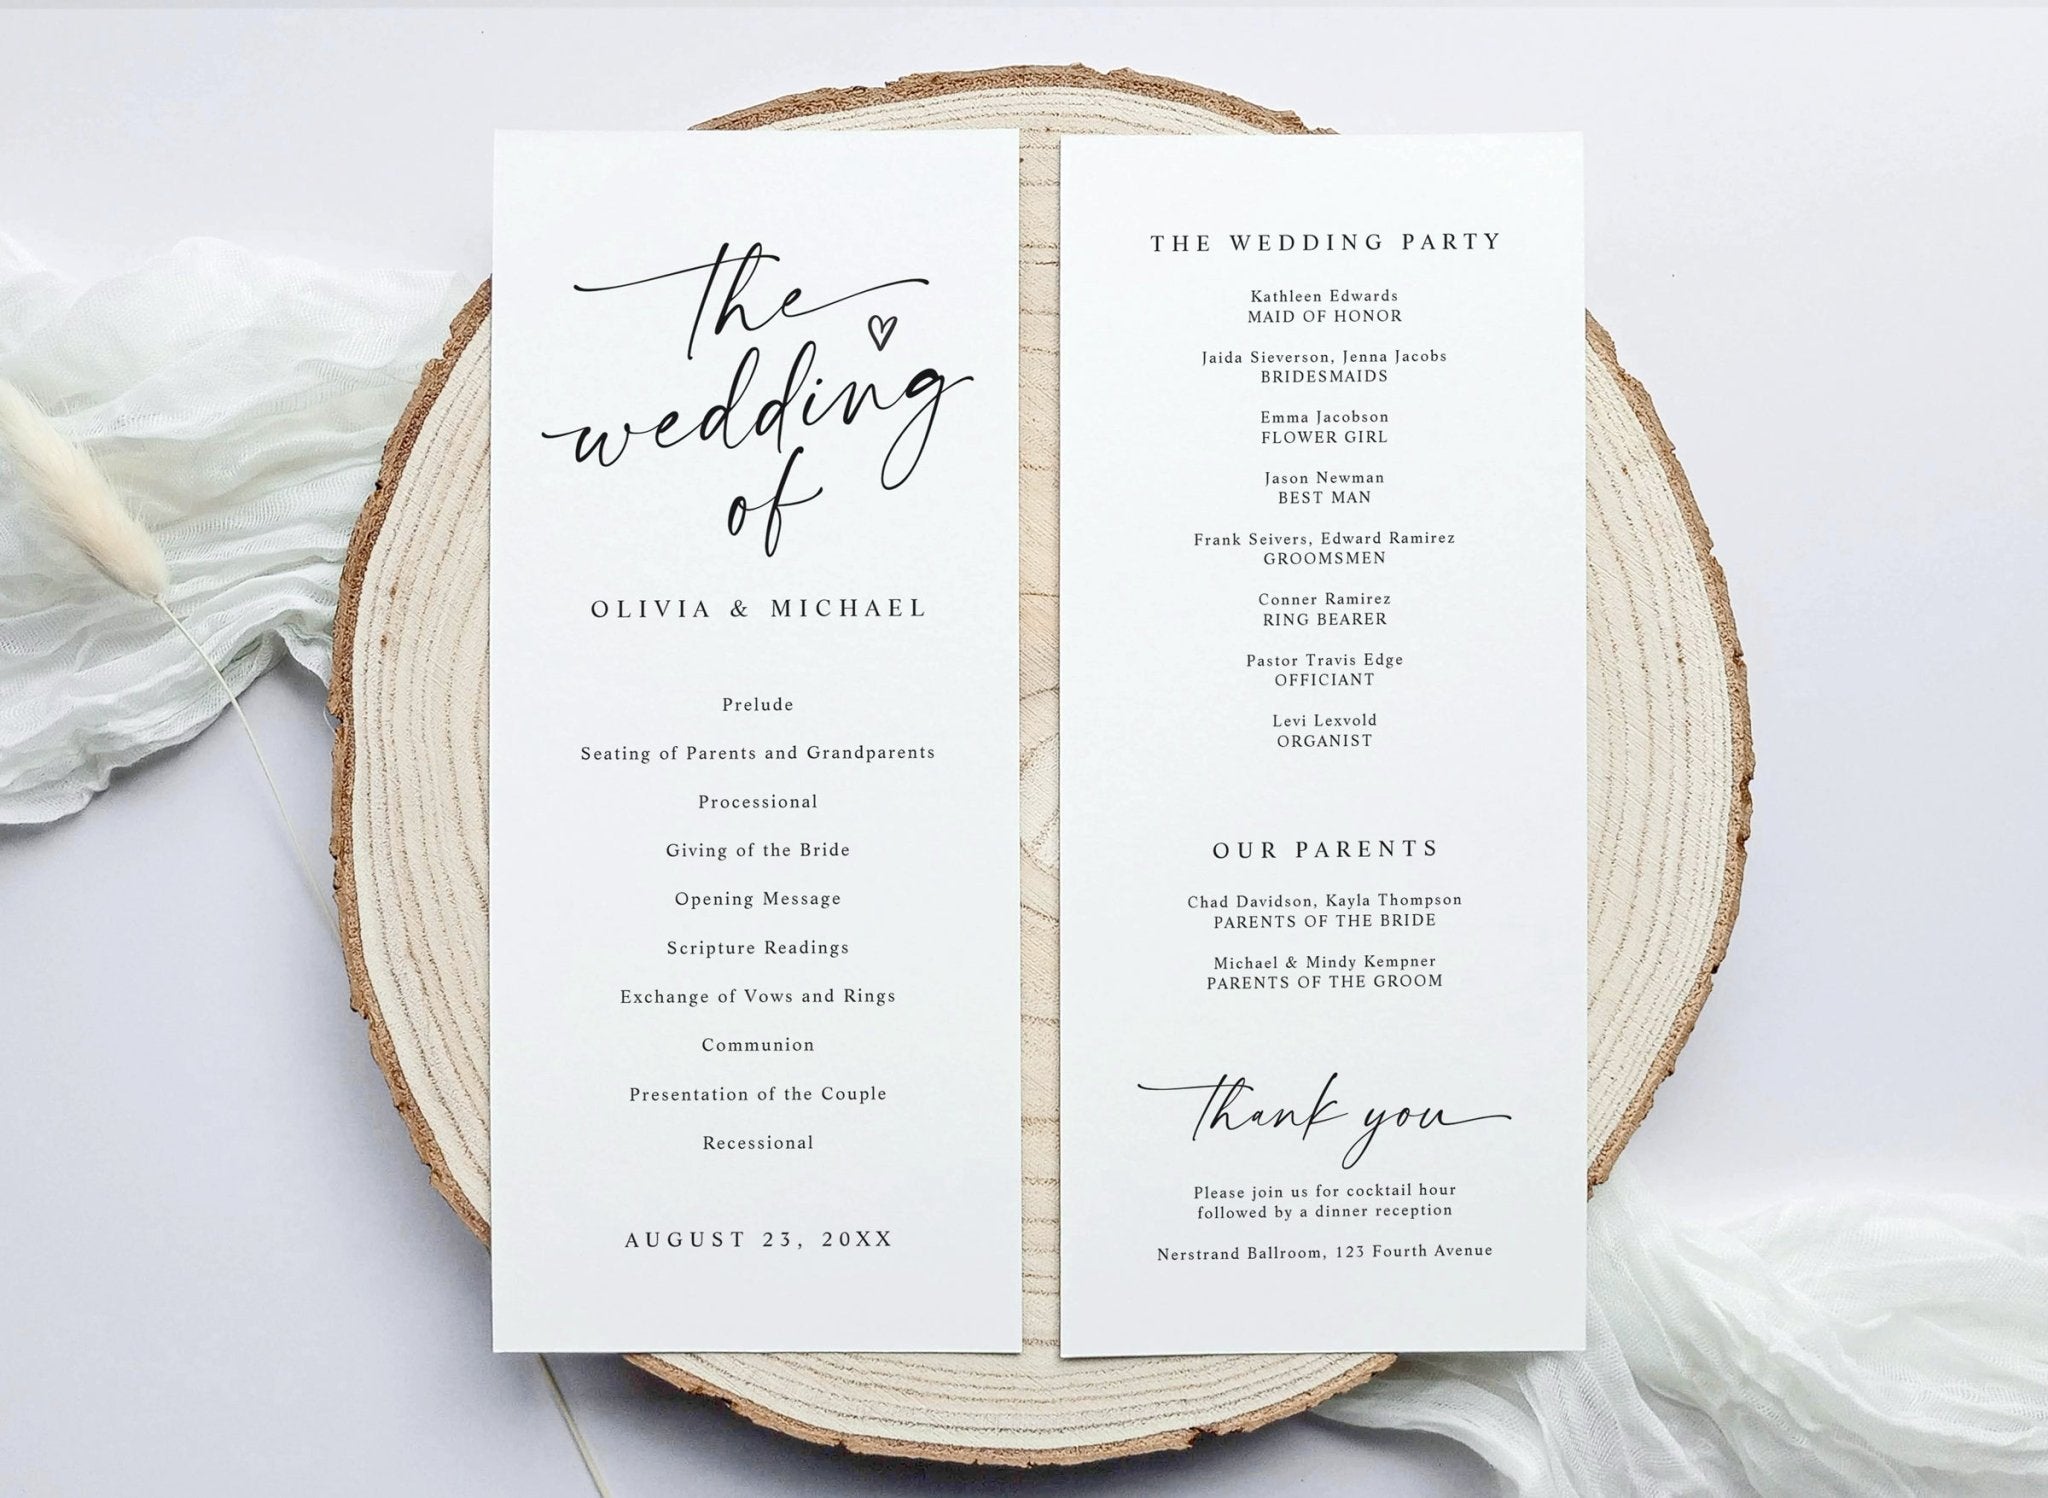 the
wedding
of
OLIVIA & MICHAEL
Prelude
Seating of Parents and Grandparents
Processional
Giving of the Bride
Opening Message
Scripture Readings
Exchange of Vows and Rings
Communion
Presentation of the Couple
Recessional
AUGUST 23, 20XX
THE WEDDING PARTY
Kathleen Edwards
MAID OF HONOR
Jaida Sieverson, Jenna Jacobs
BRIDESMAIDS
Emma Jacobson
FLOWER GIRL
Jason Newman
BEST MAN
Frank Seivers, Edward Ramirez
GROOMSMEN
Conner Ramirez
RING BEARER
Pastor Travis Edge
OFFICIANT
Levi Lexvold
ORGANIST
OUR PARENTS
Chad Davidson, Kayla Thompson
PARENTS OF THE BRIDE
Michael & Mindy Kempner
PARENTS OF THE GROOM
thank you
Please join us for cocktail hour
followed by a dinner reception
Nerstrand Ballroom, 123 Fourth Avenue